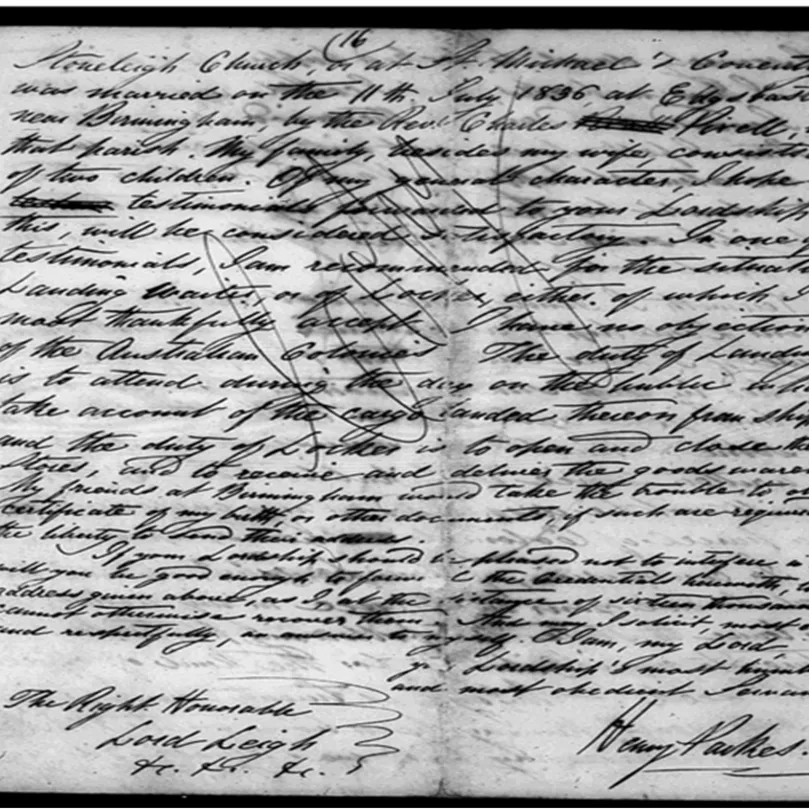 (16
Stoneleigh Church, or at St. Michael's Coventry
was married on the 11th July 1836, at Edgbaston
near Birmingham, by the Rev. Charles Pixell,
that parish. My family, besides my wife, consists
of two children. Of my general character, I hope
testimonials to your Lordship
this, will be considered satisfactory. In one
testimonial, I am recommended for the situat
Landing Waiter, or of Locker, either of which I
most thankfully accept. I have no objection
of the Australian Colonies. The duty of Landi
is to attend during the day on the public
take account of the cargo landed thereon from ship
and the duty of Locker is to open and close the
Stores, and to receive and deliver the goods ware
My friends at Birmingham would take the trouble to
certificate of my birth, or other documents, if such are requir
the liberty to send their address.
If your Lordship should be pleased not to interfere
will you be good enough to forw the Credentials herewith,
address given above, as I, at the distance of sixteen thousan
cannot otherwise recover them. And may I solicit, most
and respectfully, an answer to I am, my Lord
Lordship's most
and most obedient Servan
The Right Honorable
Lord Leigh
&c. &c. &c.
Henry Parkes.